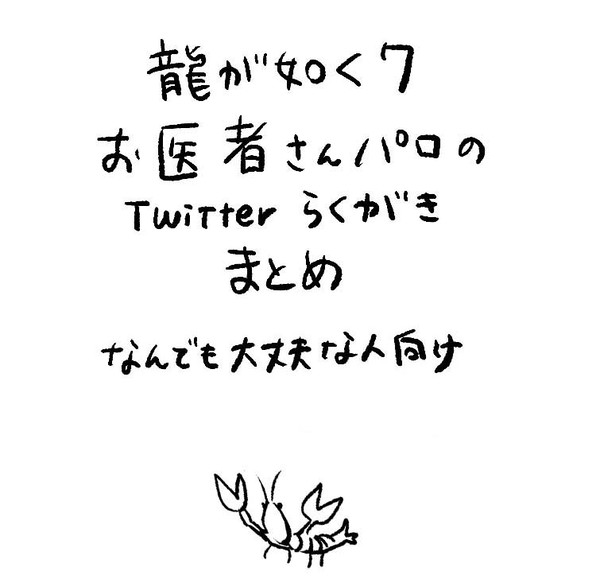 龍が如く7
お医者さんパロの
Twitter らくがき
まとめ
なんでも大丈夫な人向け